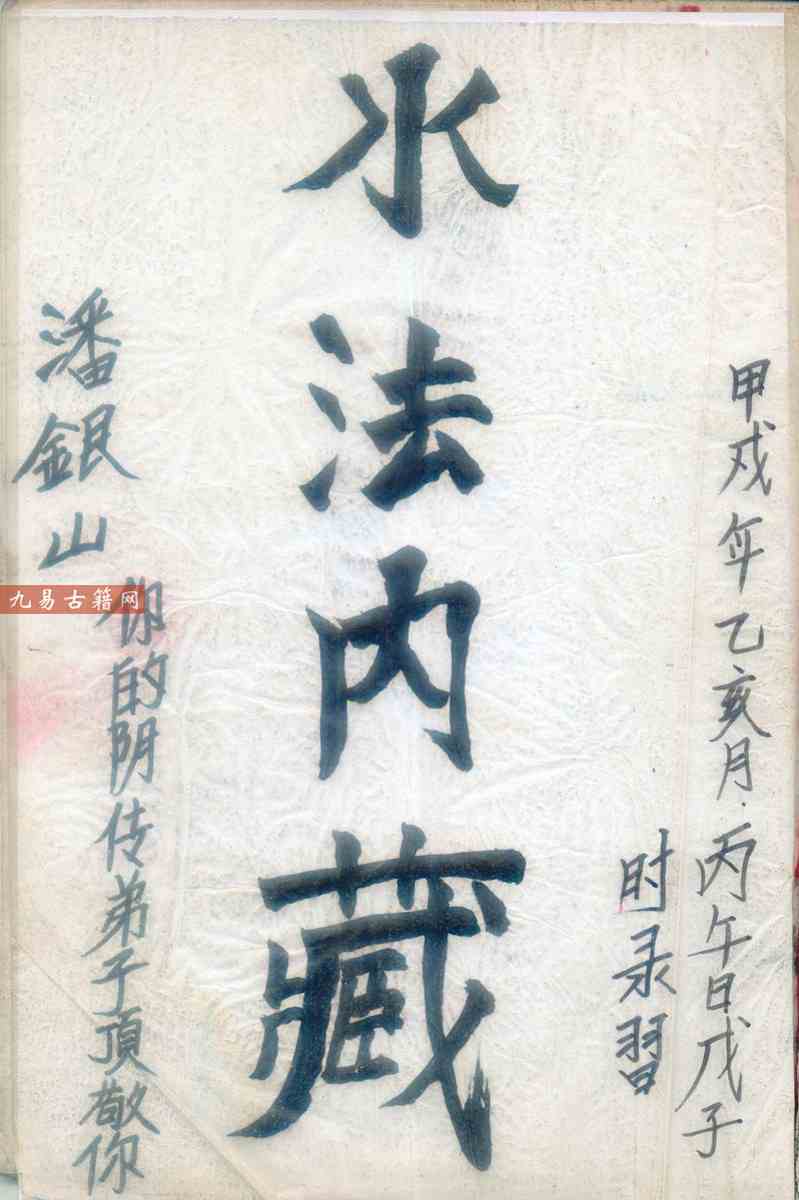 甲戌年乙亥月.丙午日戊子
时录習
水法内藏
潘銀山
你的阴传弟子頂敬你
九易古籍网